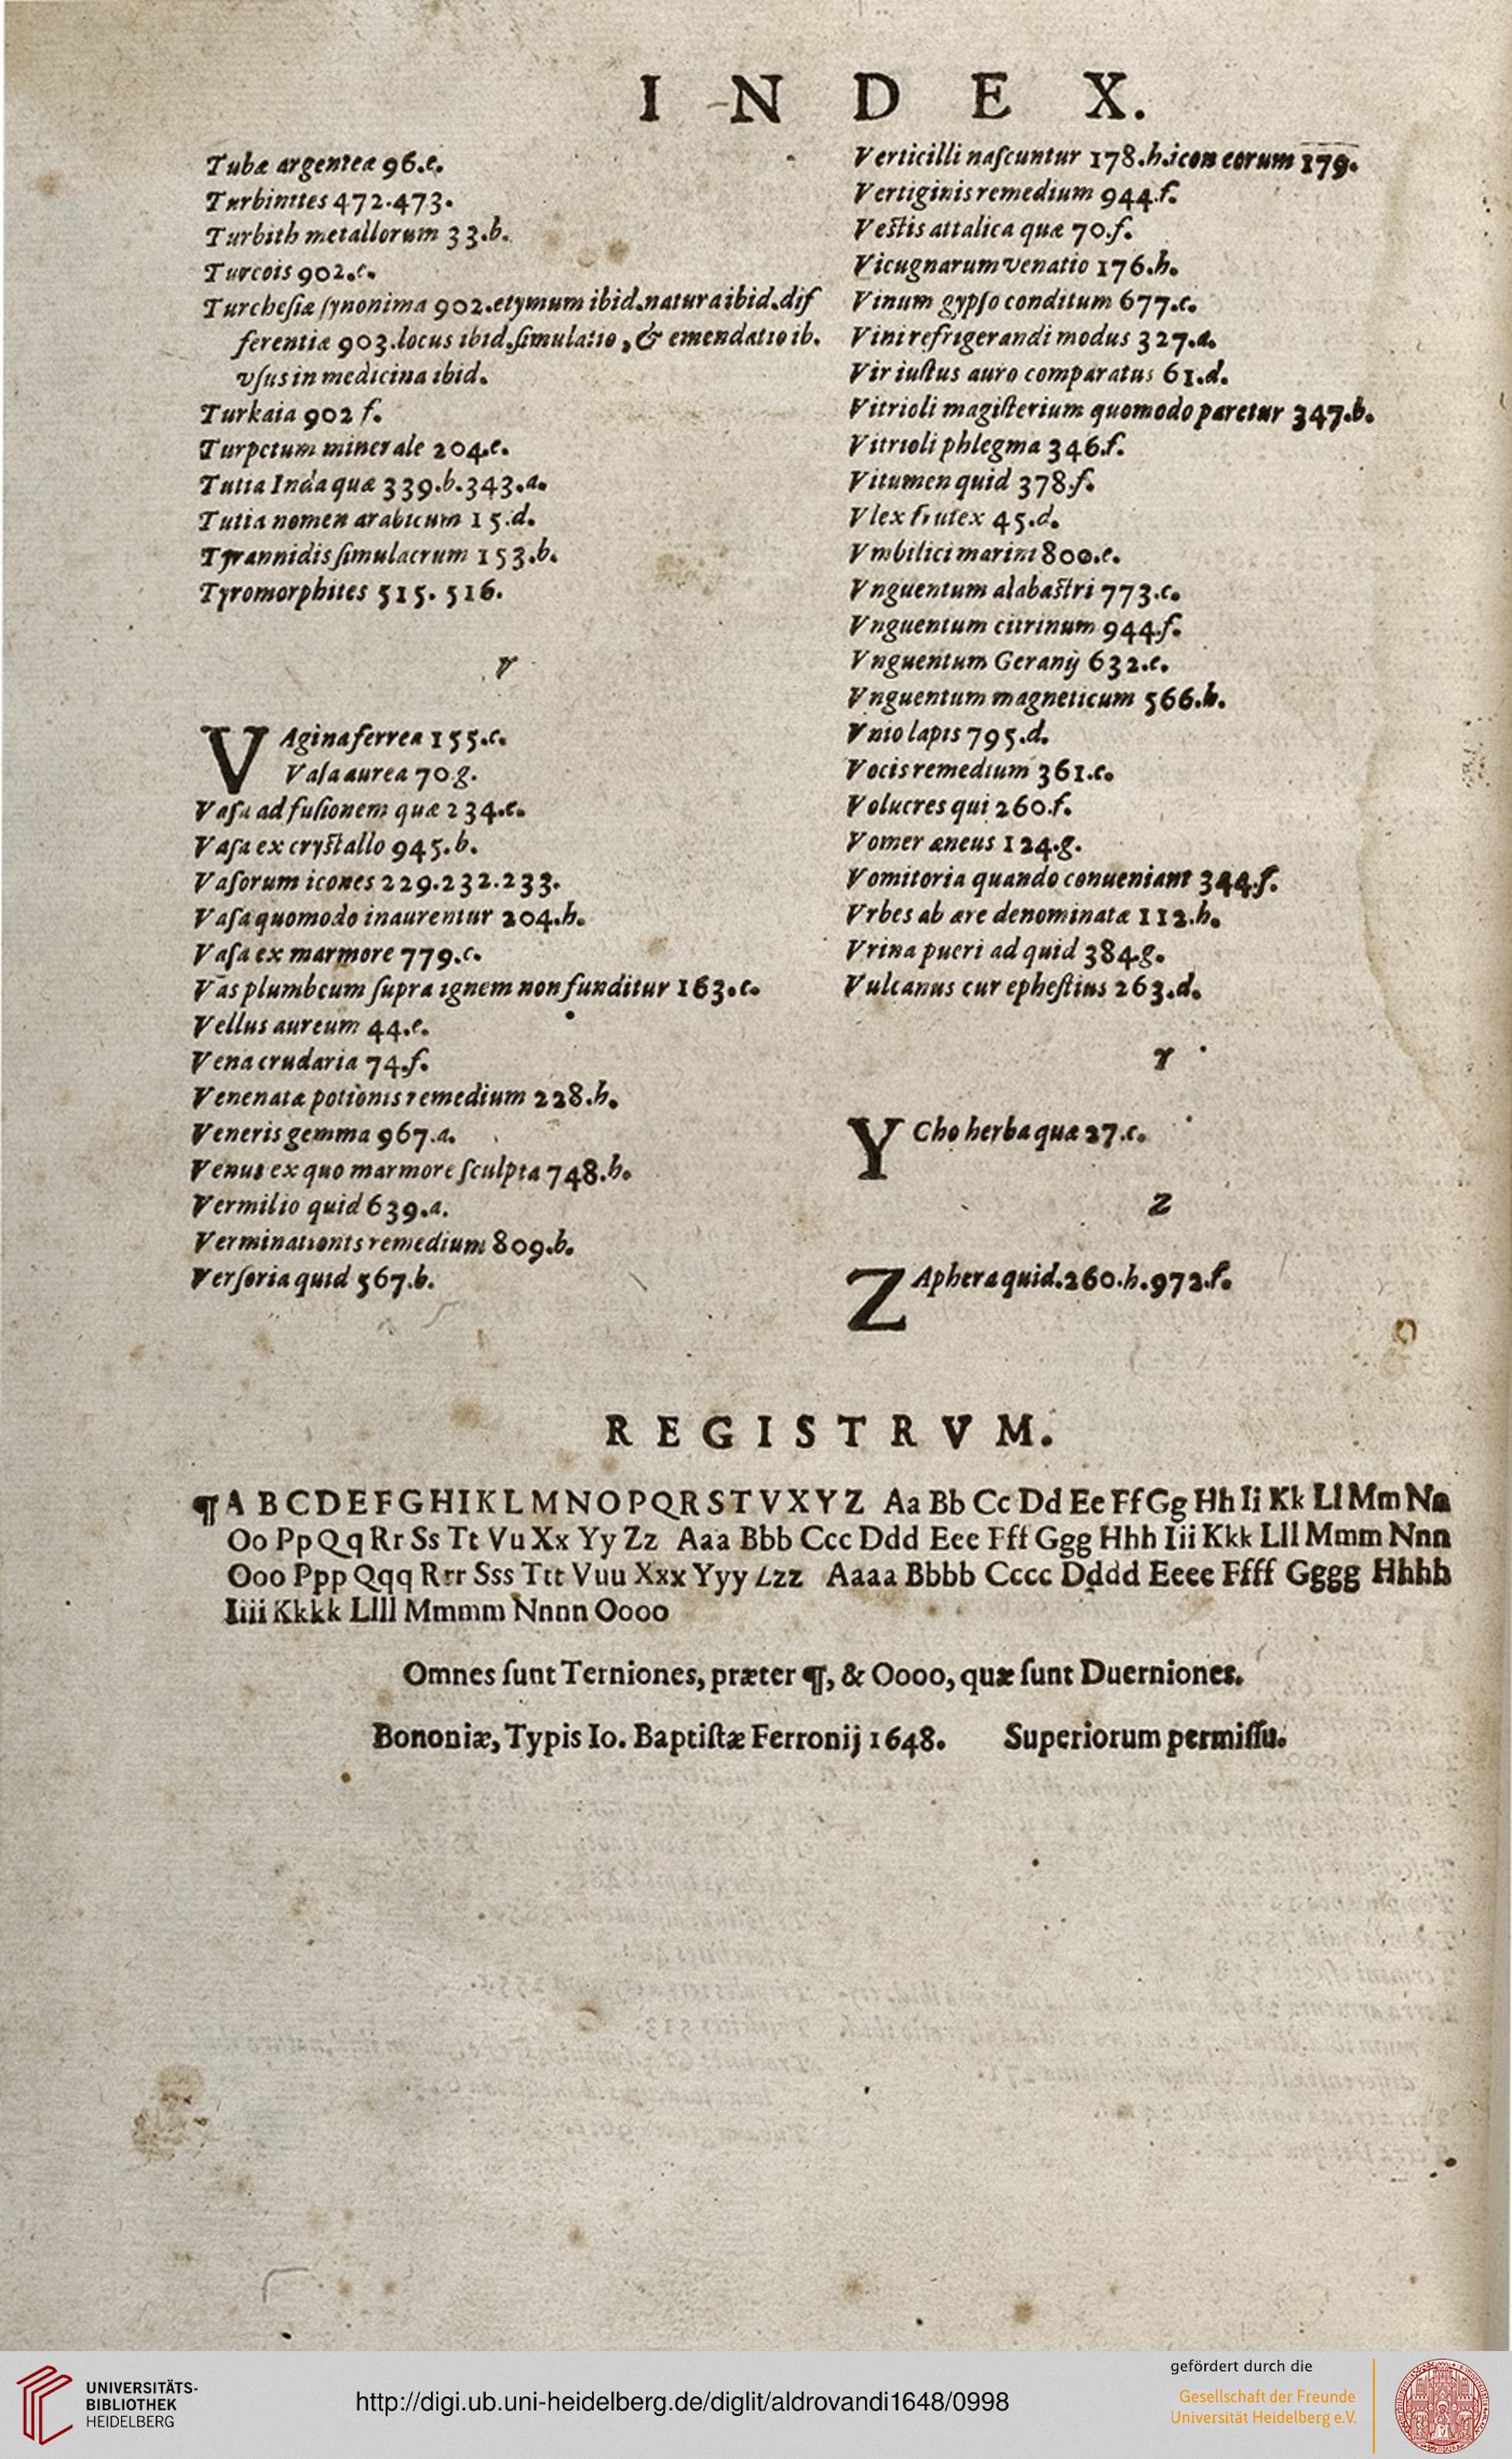 INDEX.
Tubæ argenteæ 96.e.
Turbinites 472.473.
Turbith metallorum 33.b.
Turcois 902.e.
Turchesiæ synonima 902.etymum ibid.natura ibid.dif
ferentiæ 903.locus ibid.simulatio, & emendatio ib.
vsus in medicina ibid.
Turkaia 902 f.
Turpetum minerale 204.e.
Tutia Inda quæ 339.b.343.a.
Tutia nomen arabicum 15.d.
Tyrannidis simulacrum 153.b.
Tyromorphites 515. 516.
V
VAgina ferrea 155.c.
Vasa aurea 70 g.
Vasa ad fusionem quæ 234.e.
Vasa ex crystallo 945.b.
Vasorum icones 229.232.233.
Vasa quomodo inaurentur 204.h.
Vasa ex marmore 779.c.
Vas plumbeum supra ignem non funditur 163.c.
Vellus aureum 44.e.
Vena crudaria 74.f.
Venenatæ potionis remedium 228.h.
Veneris gemma 967.a.
Venus ex quo marmore sculpta 748.h.
Vermilio quid 639.a.
Verminationis remedium 809.b.
Versoria quid 567.b.
Verticilli nascuntur 178.h.icon eorum 179.
Vertiginis remedium 944.f.
Vestis attalica quæ 70.f.
Vicugnarum venatio 176.h.
Vinum gypso conditum 677.c.
Vini refrigerandi modus 327.a.
Vir iustus auro comparatus 61.d.
Vitrioli magisterium quomodo paretur 347.b.
Vitrioli phlegma 346.f.
Vitumen quid 378.f.
Vlex frutex 45.d.
Vmbilici marini 800.e.
Vnguentum alabastri 773.c.
Vnguentum citrinum 944.f.
Vnguentum Geranij 632.e.
Vnguentum magneticum 566.h.
Vnio lapis 795.d.
Vocis remedium 361.c.
Volucres qui 260.f.
Vomer æneus 124.g.
Vomitoria quando conueniant 344.f.
Vrbes ab ære denominatæ 112.h.
Vrina pueri ad quid 384.g.
Vulcanus cur ephestius 263.d.
Y
YCho herba quæ 27.c.
Z
ZAphera quid.260.h.972.f.
REGISTRVM.
¶ A B C D E F G H I K L M N O P Q R S T V X Y Z Aa Bb Cc Dd Ee Ff Gg Hh Ii Kk Ll Mm Nn
Oo Pp Qq Rr Ss Tt Vu Xx Yy Zz Aaa Bbb Ccc Ddd Eee Fff Ggg Hhh Iii Kkk Lll Mmm Nnn
Ooo Ppp Qqq Rrr Sss Ttt Vuu Xxx Yyy Zzz Aaaa Bbbb Cccc Dddd Eeee Ffff Gggg Hhhh
Iiii Kkkk Llll Mmmm Nnnn Oooo
Omnes sunt Terniones, præter ¶, & Oooo, quæ sunt Duerniones.
Bononiæ, Typis Io. Baptistæ Ferronij 1648. Superiorum permissu.
UNIVERSITÄTS-
BIBLIOTHEK
HEIDELBERG
http://digi.ub.uni-heidelberg.de/diglit/aldrovandi1648/0998
gefördert durch die
Gesellschaft der Freunde
Universität Heidelberg e.V.